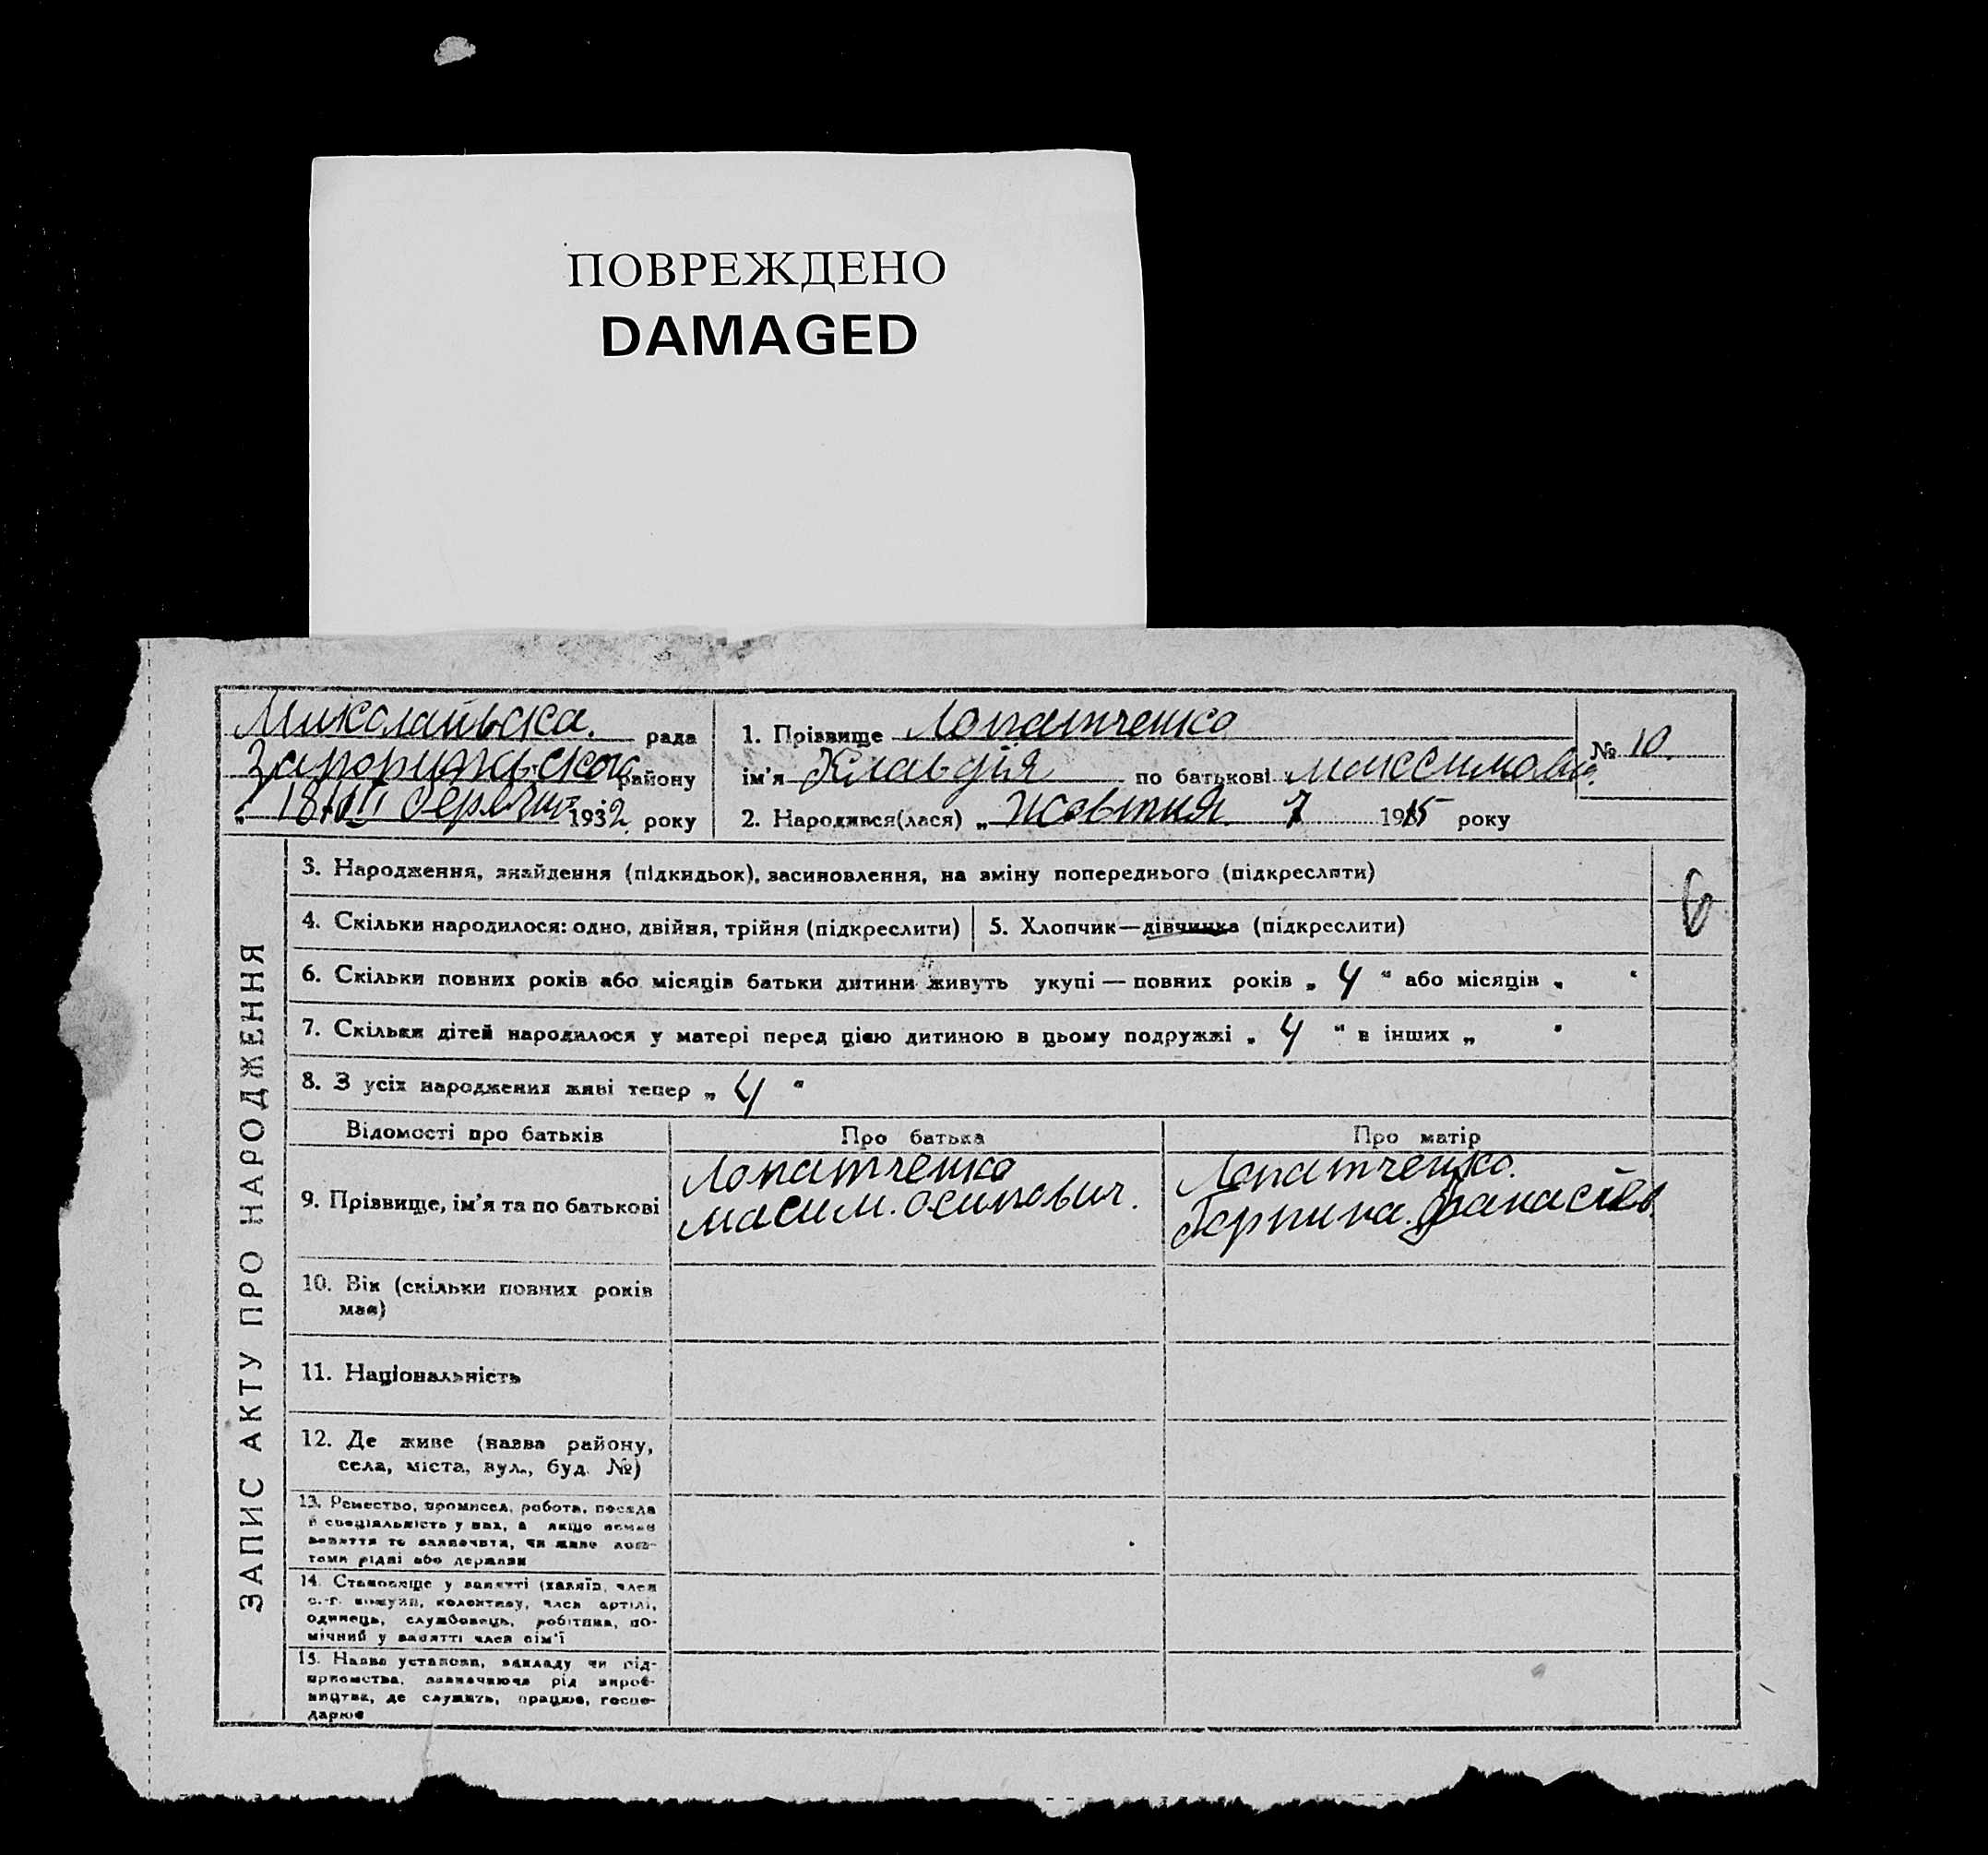 ПОВРЕЖДЕНО
DAMAGED
Миколаївська. рада
району
18/III 1932 року
1. Прізвище Лопатченко
ім'я Клавдія по батькові Максимовн
№ 10.
2. Народився(лася) „ жовтня 7 1915 року
ЗАПИС АКТУ ПРО НАРОДЖЕННЯ
3. Народження, знайдення (підкидьок), засиновлення, на зміну попереднього (підкреслити)
6
4. Скільки народилося: одно, двійня, трійня (підкреслити)
5. Хлопчик—дівчинка (підкреслити)
6. Скільки повних років або місяців батьки дитини живуть укупі — повних років „ 4 “ або місяців „ “
7. Скільки дітей народилося у матері перед цією дитиною в цьому подружжі „ 4 “ в інших „ “
8. З усіх народжених живі тепер „ 4 “
Відомості про батьків
Про батька
Про матір
9. Прізвище, ім'я та по батькові
Лопатченко
Масим. Осипович.
Лопатченко.
10. Вік (скільки повних років
має)
11. Національність
12. Де живе (назва району,
села, міста, вул., буд. №)
13. Ремество, промисел, робота, посада
й спеціяльність у них, а якщо немає
заняття то зазначити, чи живе кош-
тами рідні або держави
14. Становище у занятті (хазяїн, член
с.-г. комуни, колективу, член артілі,
одинець, службовець, робітник, по-
мічний у занятті член сім'ї
15. Назва установи, закладу чи під-
приємства, зазначаючи рід вироб-
ництва, де служить, працює, госпо-
дарює